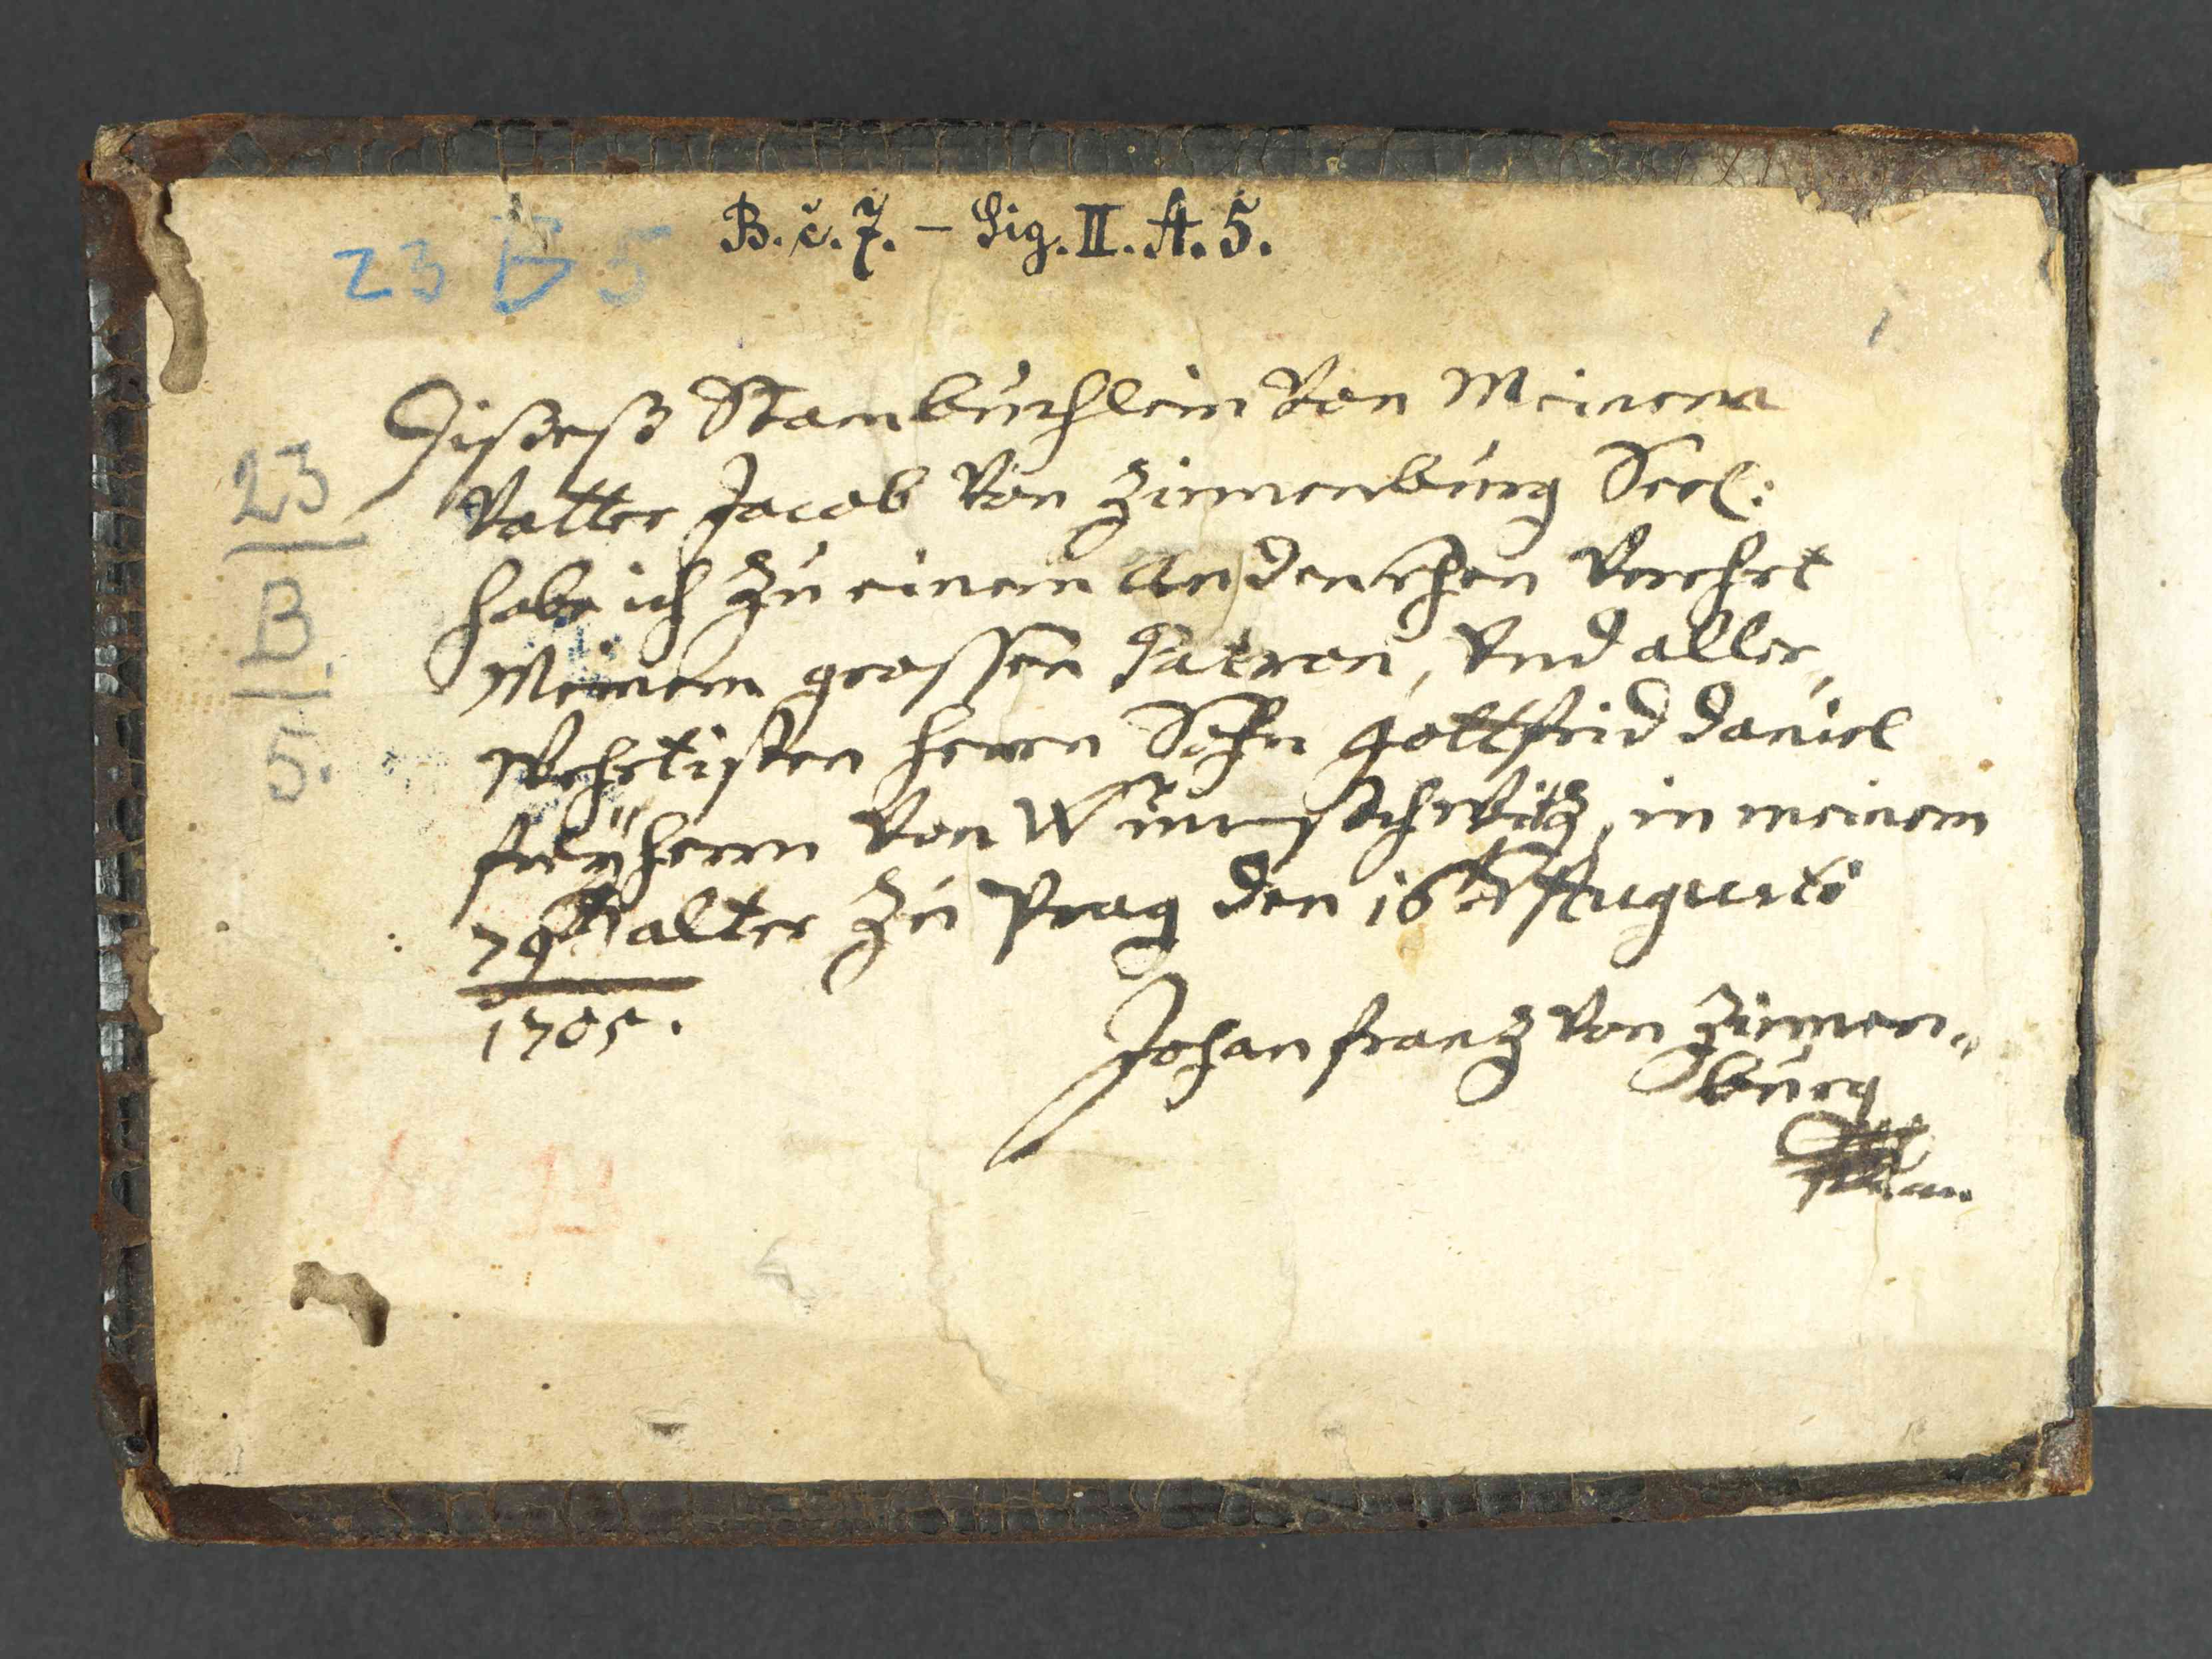 23 B 5
B. č. 7. – Sig. II. A. 5.
23
B.
5.
Dißeß Stambüchlein Von Meinem
Vatter Jacob Von Zinnenburg Seel:
habe ich zu einem Andenckhen Verehrt
Meinem grossen Patron, Vnd aller,
Wehrtisten herrn Sohn Gottfrid Daniel
freÿherrn Von Wunschwitz, in meinem
79ten alter zu Prag den 16ten Augusti
1705.
Johan frantz Von Zinnen,,
burg